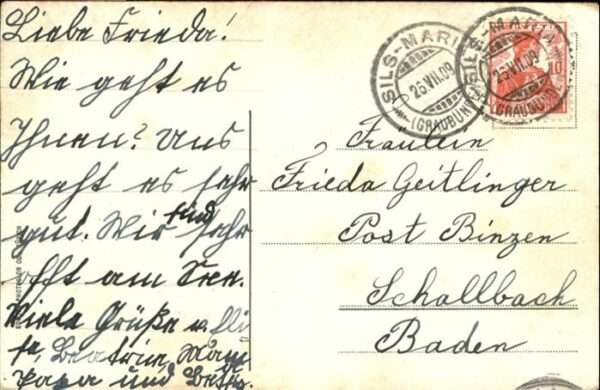 Liebe Frieda!
Wie geht es
Ihnen? Uns
geht es sehr
gut. Wir sind sehr
oft am See.
Viele Grüße v.
Beatrice, Mama
Papa und
SILS-MARIA
26.VII.09
(GRAUBÜND
SILS-MARIA
26.VII.09
(GRAUBÜND
10
Fräulein
Frieda Geitlinger
Post Binzen
Schallbach
Baden